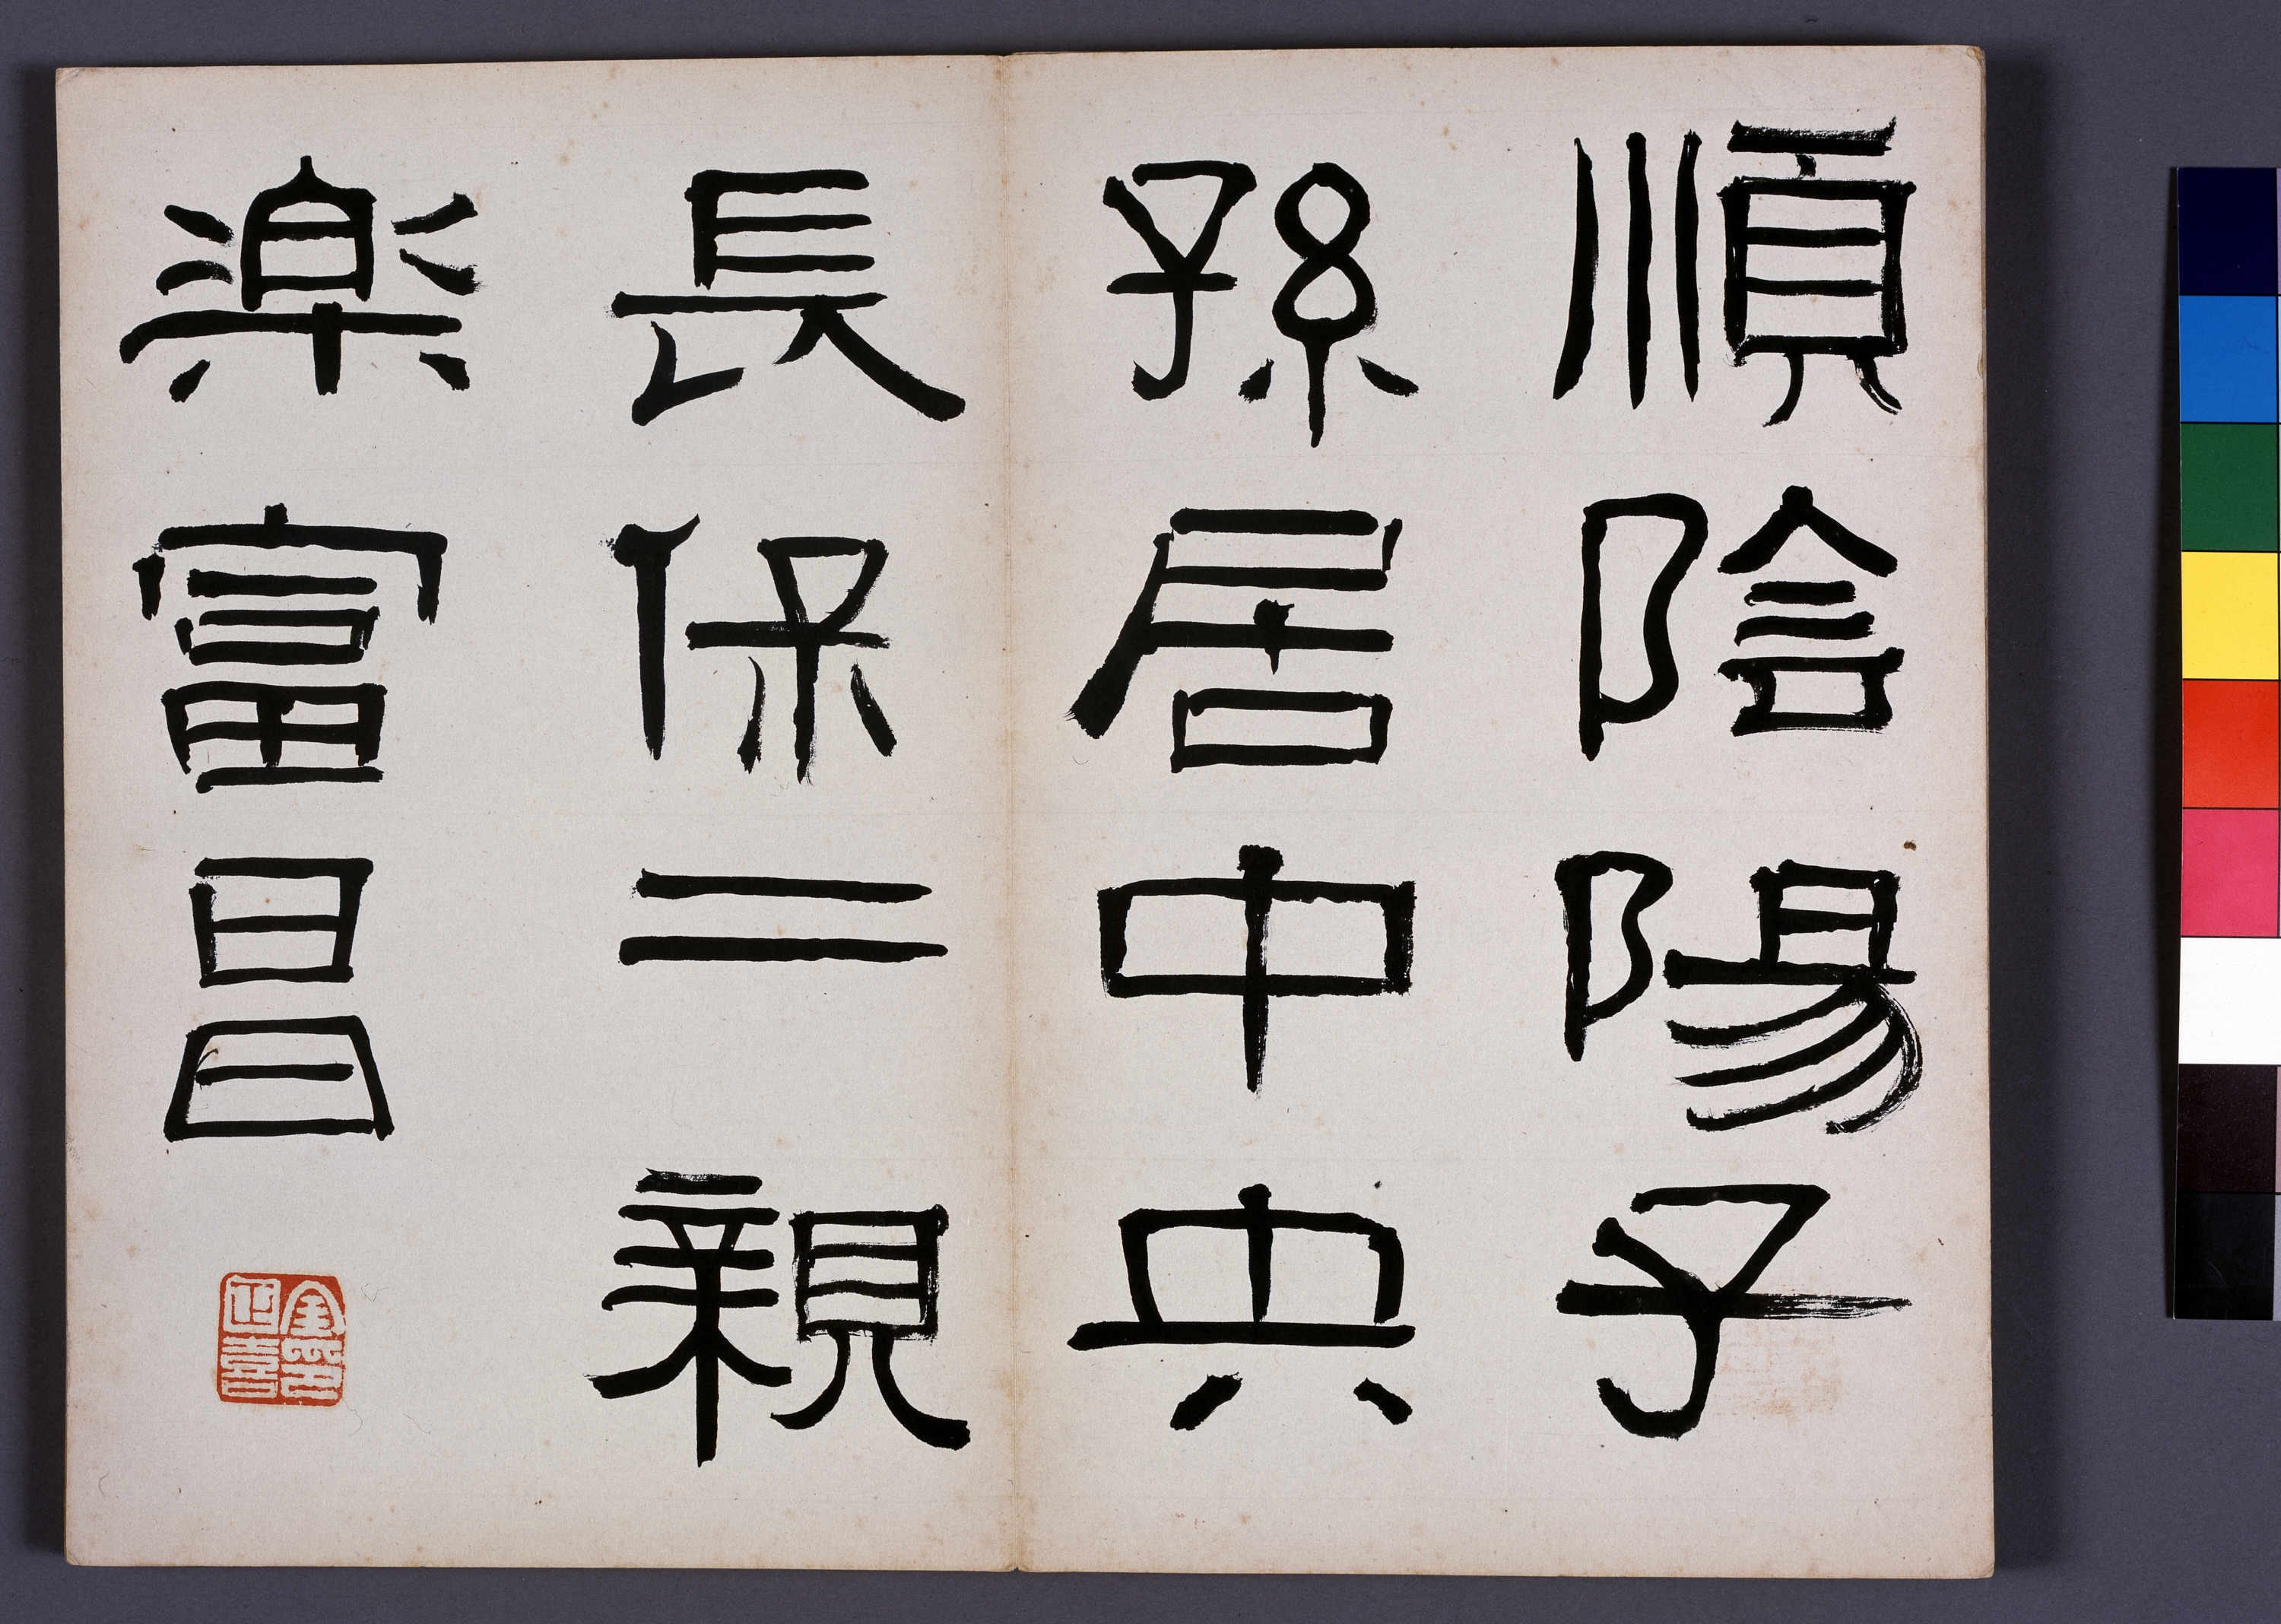 順陰陽子
孫居中央
長保二親
樂富昌